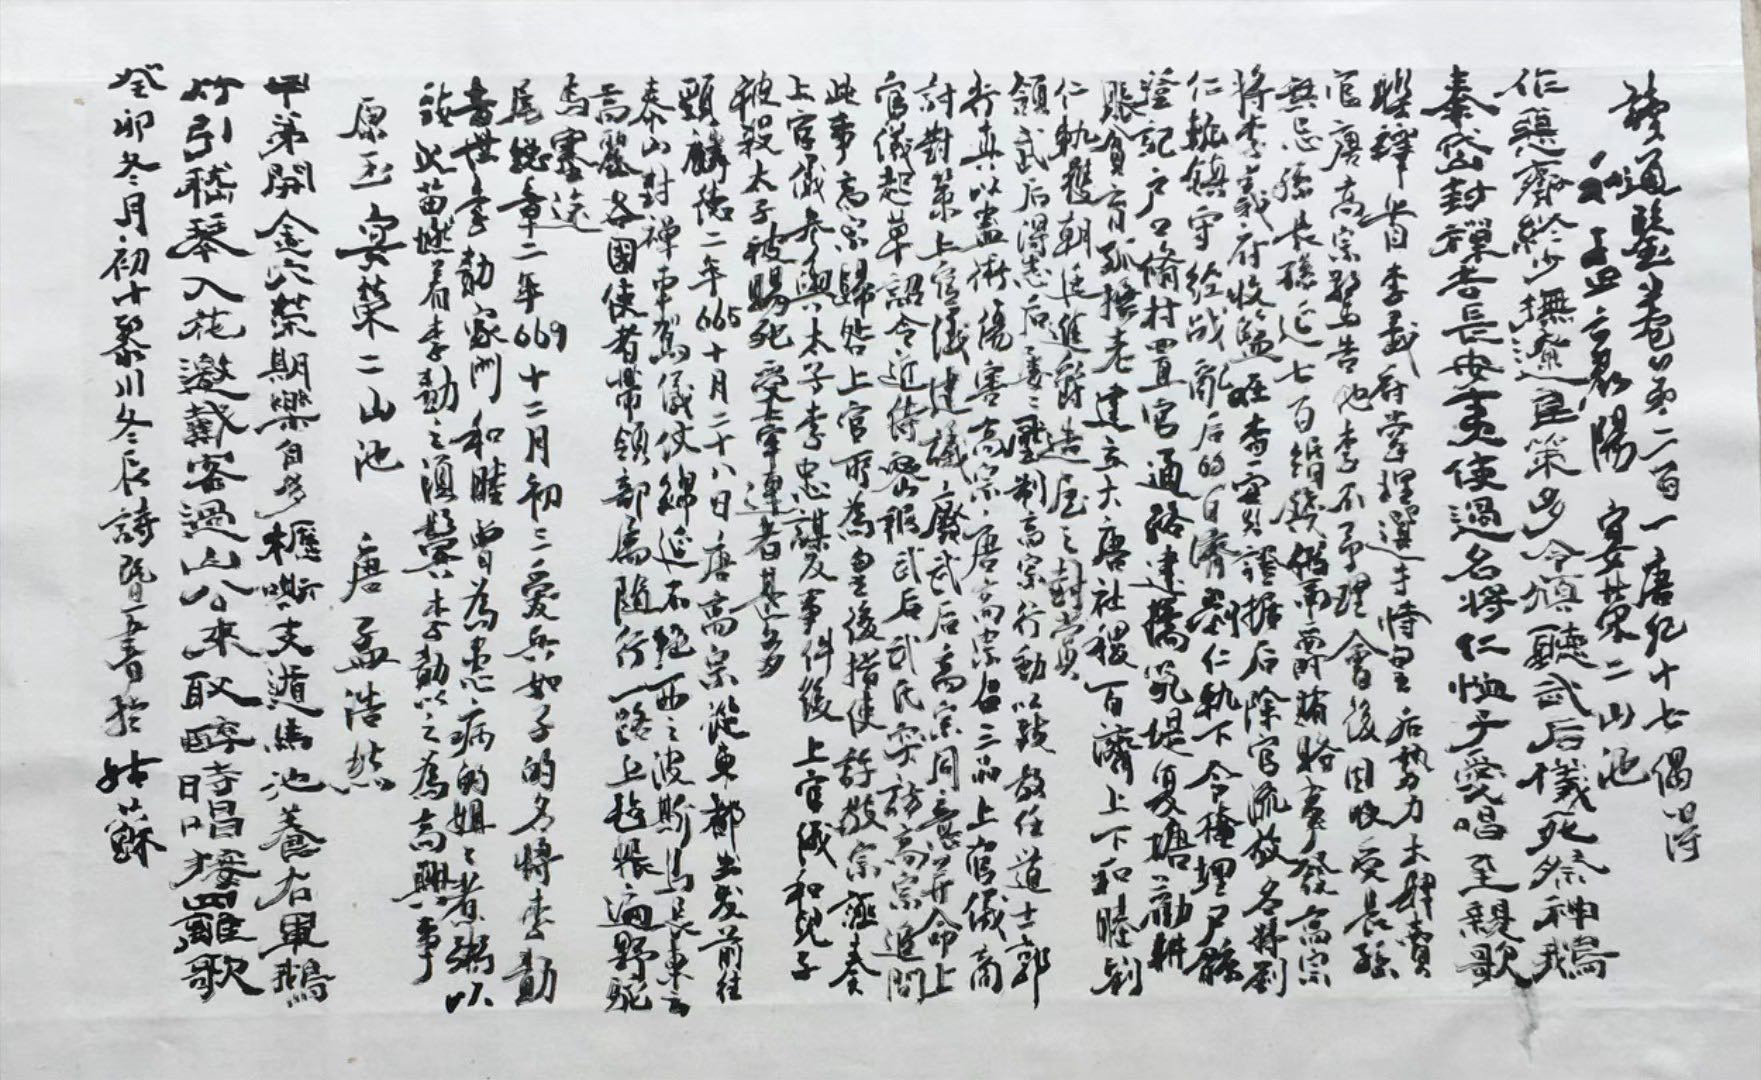 讀通鑒卷第二百一唐紀十七偶得
和孟襄陽 宴榮二山池
作惡齋 少撫遼良策多令填聽武后儀死祭神鵝
泰岱山封禪者長安夷使過名將仁恤子愛唱至親歌
聯釋首李義府掌理選寺恃皇后勢力大肆賣
官唐高宗警告他李不予理會後因收受長孫
無忌孫長孫延七百緡錢 賄賂事發高宗
將李義府收監 查實證據后除官流放名將劉
仁軌鎮守經战亂后的百濟劉仁軌下令掩埋尸骸
登記户口脩村置官通路建橋筑堤复塘勸耕
賬貧育孤撫老建立大唐社稷百濟上下和睦劉
仁軌獲朝廷進爵造屋之封賞
領武后得志后 壓制高宗行動以致教任道士郭
行真以蠱術傷害高宗唐高宗召三品上官儀商
討對策上官儀建議廢武后高宗同意并命上
官儀起草詔令近侍密報武后武氏 訪高宗追問
此事高宗歸咎上官所為皇後指使許敬宗誣奏
上官儀參與太子李忠謀反事件後上官儀和兒子
被殺太子被賜死受牽連者甚多
顯麟德二年665十月二十八日唐高宗從東都出发前往
泰山封禪車駕儀仗綿延不絕西之波斯烏長東之
高麗各國使者帶領部屬隨行一路上毡帳遍野駝
馬塞途
尾總章二年669十二月初三愛兵如子的名將李勣
去世李勣家門和睦曾為患病的姐姐煮粥以
致火苗 着李勣之須髯李勣以之為高興事
原玉宴榮二山池 唐孟浩然
甲第開金穴榮期樂自多櫪嘶支遁馬池養右軍鵝
竹引嵇琴入花邀戴客過山公來取醉時唱接䍦歌
癸卯冬月初十黎川冬辰詩 書於姑蘇